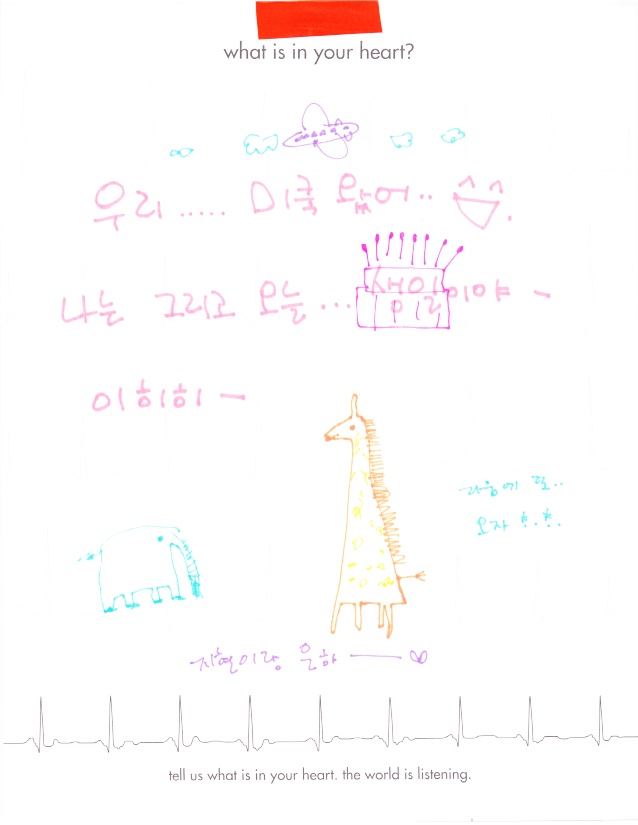 what is in your heart?
우리 ..... 미국 왔어..
나는 그리고 오늘 ... 생일이야 ~
이히히 ~
다음에 또..
오자 ㅎ.ㅎ.
지현이랑 은하
tell us what is in your heart. the world is listening.